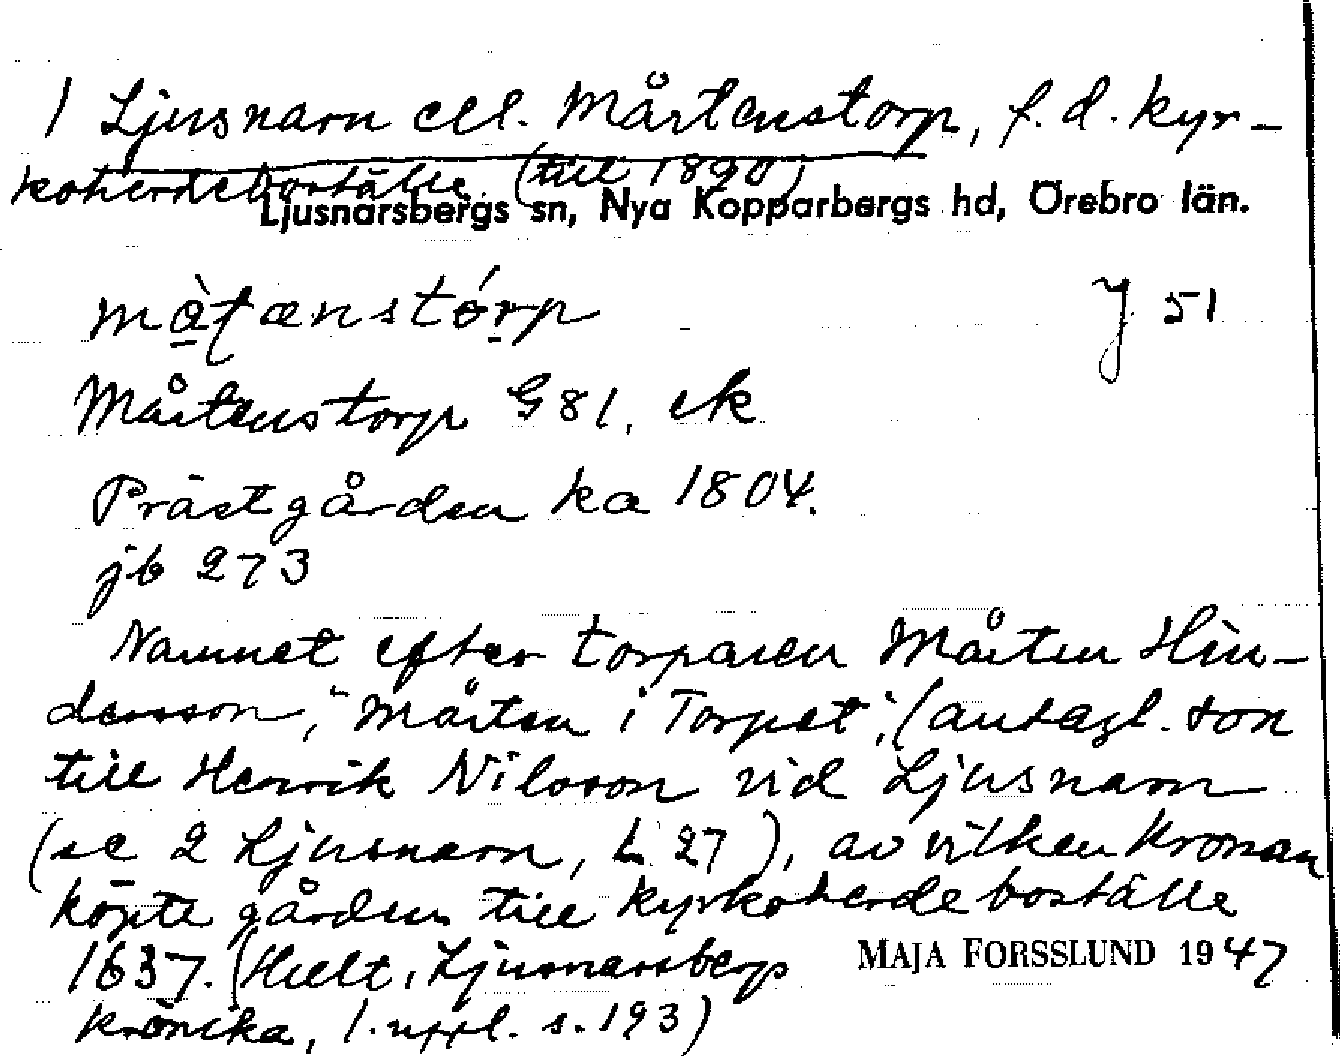 1 Ljusnarn ell. Mårtenstorp, f.d. kyr-
koherdeboställe (till 1890)
Ljusnarsbergs sn, Nya Kopparbergs hd, Örebro län.
J 51
Mårtenstorp G 81, ek
Prästgården ka 1804.
jb 273
Namnet efter torparen Mårten Hin-
dersson, "Mårten i Torpet", (antagl. son
till Henrik Nilsson vid Ljusnarn
(se 2 Ljusnarn, L 27), av vilken kronan
köpte gården till kyrkoherdeboställe
1637. (Hult, Ljusnarsbergs
MAJA FORSSLUND 1947
krönika, 1. uppl. s. 193)